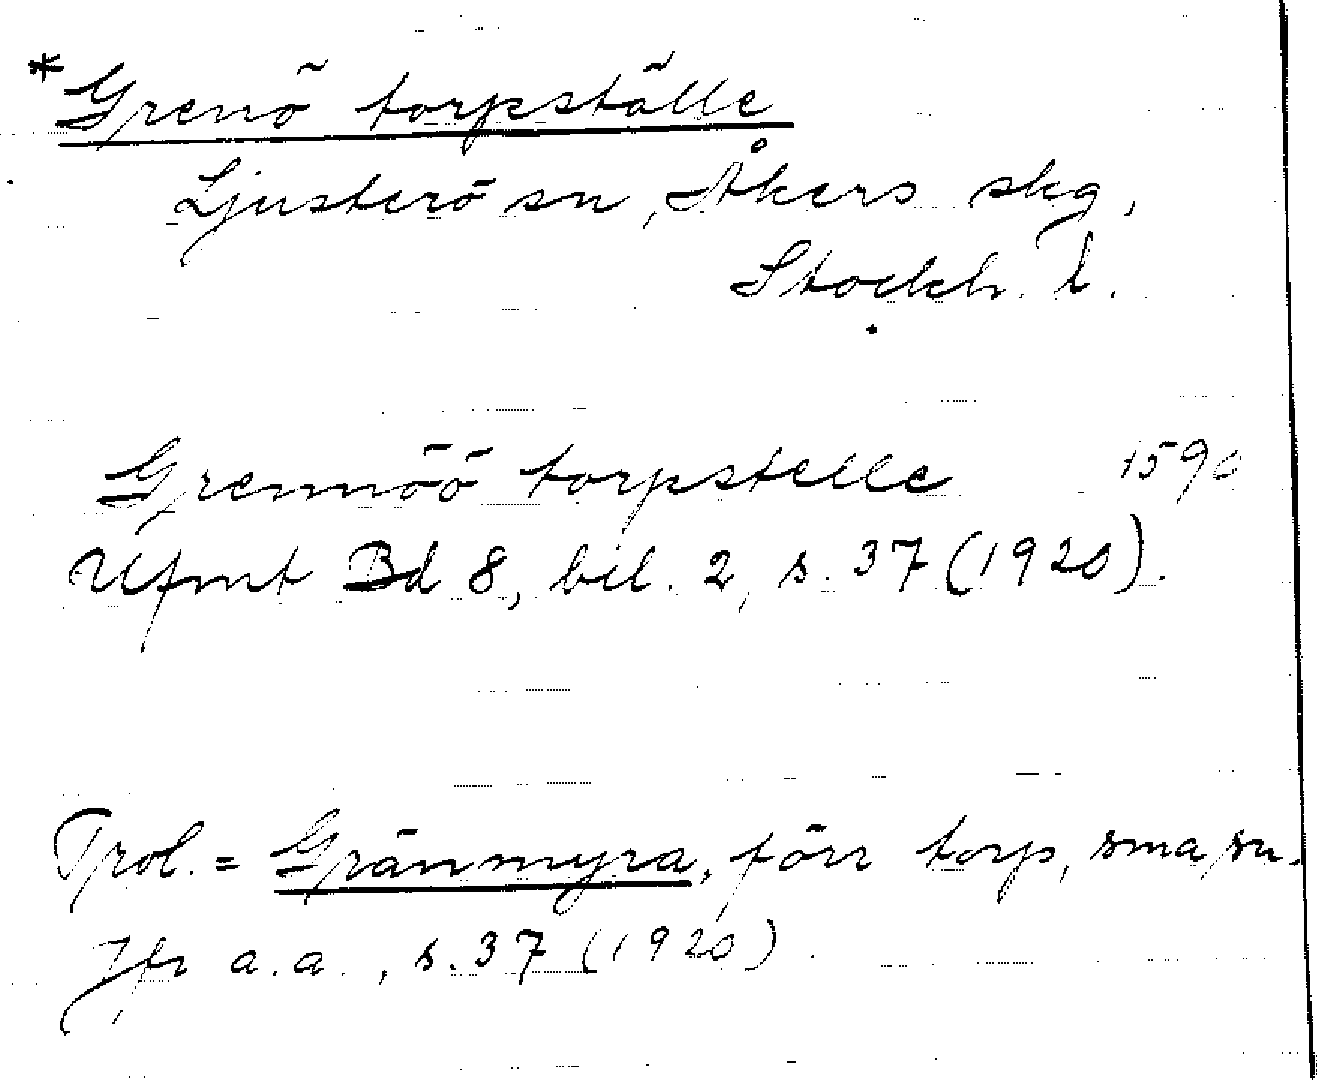 *Grenö torpställe
Ljusterö sn, Åkers skg,
Stockh. l.
Grennöö torpstelle 1590
Ufmt Bd 8, bil. 2, s. 37 (1920).
Trol. = Gränmyra, förr torp, sma sn.
Jfr a.a., s. 37 (1920).